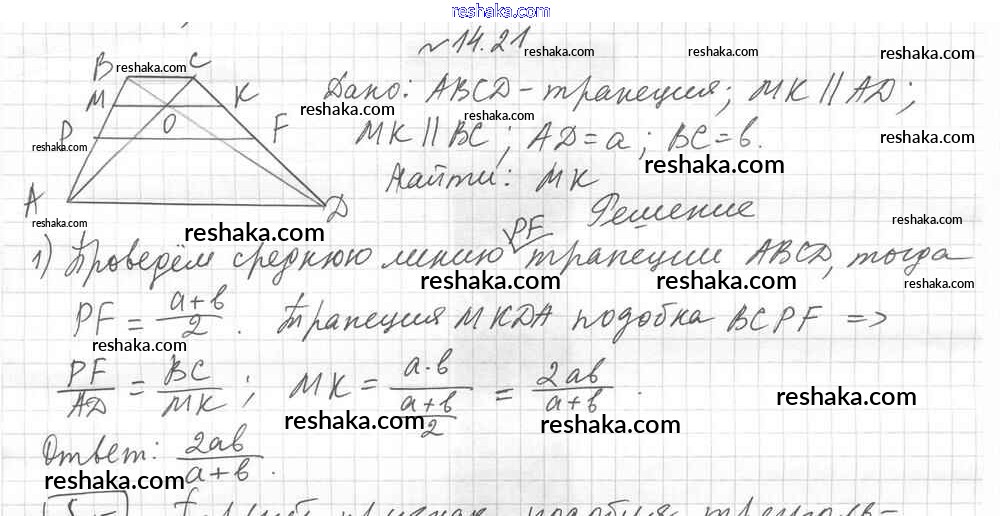 reshaka.com
№14.21
reshaka.com reshaka.com reshaka.com
B reshaka.com C
Дано: ABCD - трапеция; MK || AD;
M K reshaka.com reshaka.com
O
P F MK || BC; AD = a; BC = b. reshaka.com
reshaka.com reshaka.com
Найти: MK
A D
Решение
reshaka.com reshaka.com reshaka.com
PF
1) Проведём среднюю линию трапеции ABCD, тогда
reshaka.com reshaka.com reshaka.com
PF = a+b / 2 . Трапеция MKDA подобна BCPF =>
reshaka.com
PF / AD = BC / MK ; MK = a·b / (a+b / 2) = 2ab / a+b .
reshaka.com reshaka.com reshaka.com
Ответ: 2ab / a+b .
reshaka.com reshaka.com reshaka.com
подобия